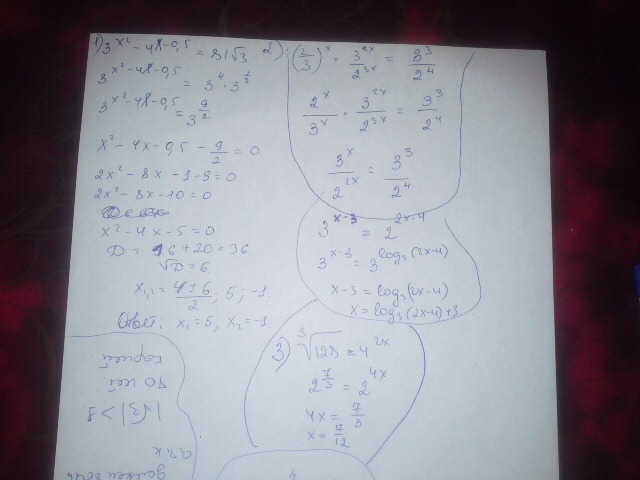 1) 3^(x²-4x-0,5) = 81√3
3^(x²-4x-0,5) = 3^4 · 3^(1/2)
3^(x²-4x-0,5) = 3^(9/2)
x² - 4x - 0,5 - 9/2 = 0
2x² - 8x - 1 - 9 = 0
2x² - 8x - 10 = 0
x² - 4x - 5 = 0
D = 16 + 20 = 36.
√D = 6
x₁,₂ = (4±6)/2; 5; -1.
Ответ: x₁ = 5, x₂ = -1.
2) (2/3)^x · 3^(2x)/2^(3x) = 3³/2⁴
2^x/3^x · 3^(2x)/2^(3x) = 3³/2⁴
3^x/2^(2x) = 3³/2⁴
3^(x-3) = 2^(2x-4)
3^(x-3) = 3^(log₃(2x-4))
x-3 = log₃(2x-4)
x = log₃(2x-4)+3.
3) ∛128 = 4^(2x)
2^(7/3) = 2^(4x)
4x = 7/3
x = 7/12
должен быть
а т.к
|√3| > 1.
то
корней